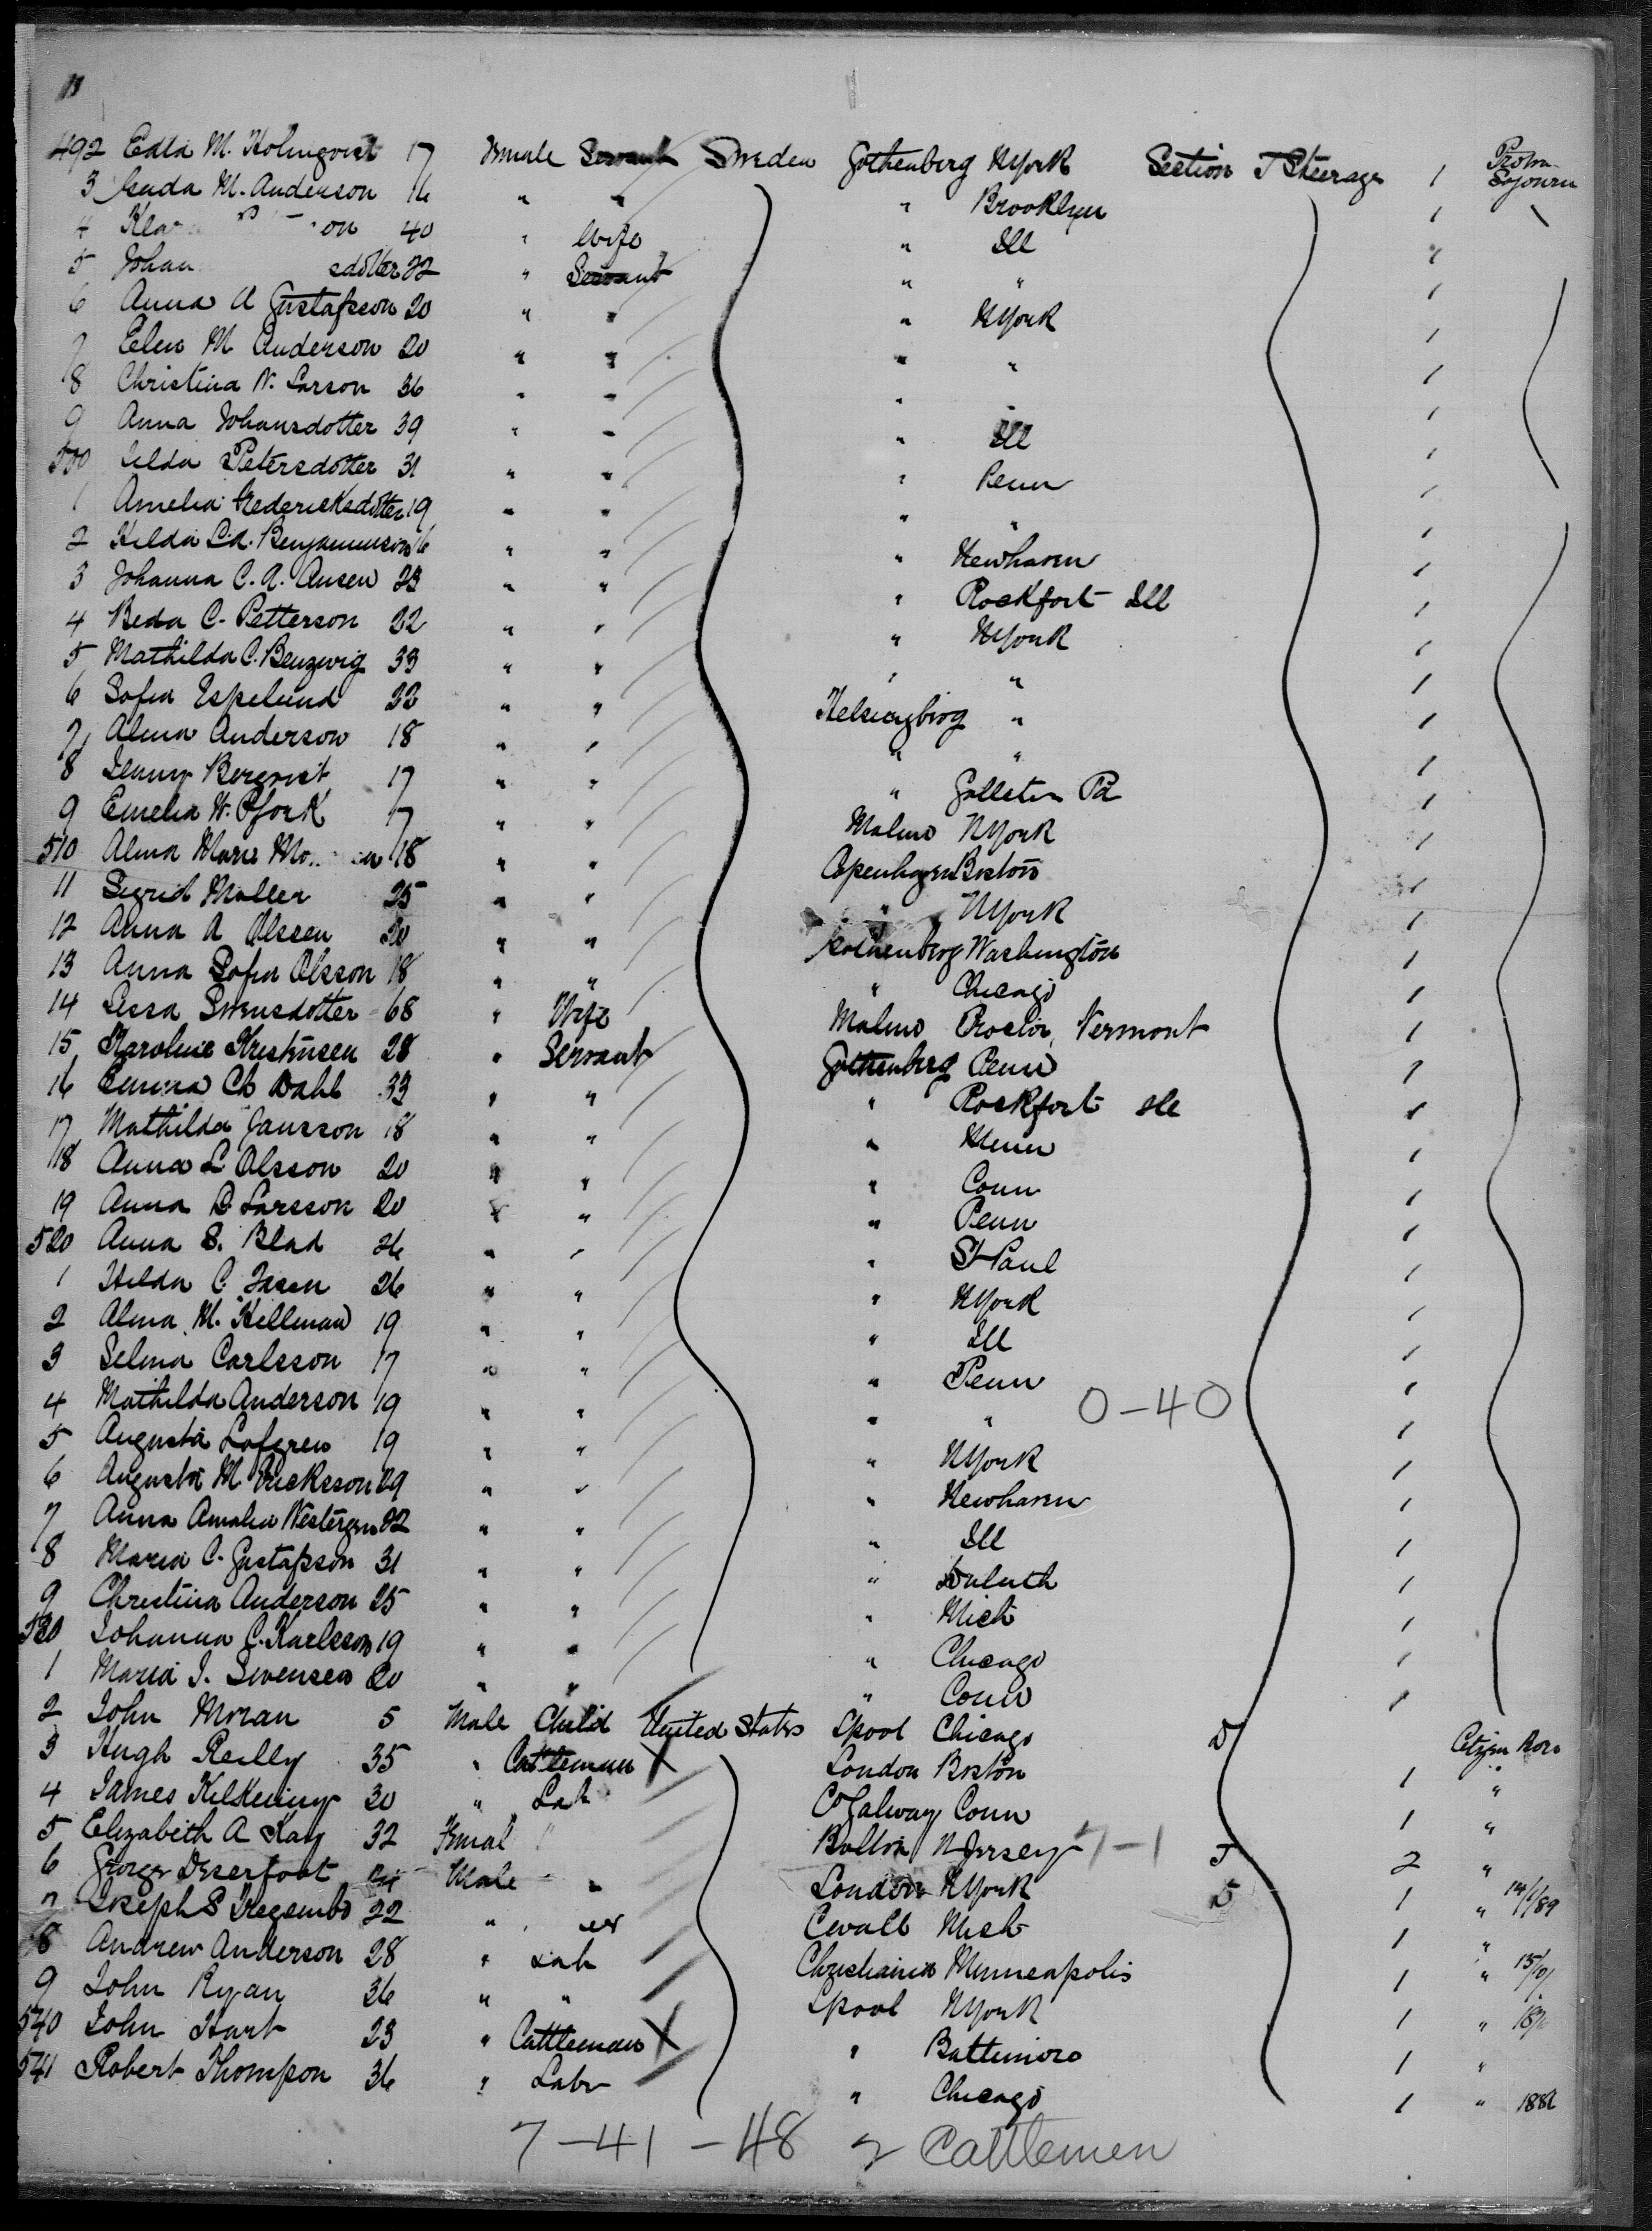 492 Edla M. Holmqvist 17 Female Servant Sweden Gothenberg NYork Section T Steerage 1 Protra Sojourn
3 M. Anderson 16 " " " Brooklyn 1
4 on 40 " Wife " Ill
5 Johan edotter 22 " Servant " " 1
6 Anna A Gustafsson 20 " " " NYork 1
7 Elen M Anderson 20 " " " " 1
8 Christina N. Larson 36 " " " " 1
9 Anna Johansdotter 39 " " " Ill 1
500 Petersdotter 31 " " " Penn 1
1 Amelia Fredericksdotter 19 " " " " 1
2 Hilda Benjaminson 16 " " " Newhaven 1
3 Johanna C. A. Ansen 23 " " " Rockfort Ill 1
4 Beda C. Petterson 22 " " " NYork 1
5 Mathilda C. Benzwig 33 " " " " 1
6 Sofia Espelund 22 " " Helsingborg " 1
7 Alma Anderson 18 " " " " 1
8 Jenny Bergvist 17 " " " Galleton Pa 1
9 Emelia W. 17 " " Malmo NYork 1
510 Alma Marie 18 " " Copenhagen Boston 1
11 Sigrid Moller 25 " " " NYork 1
12 Anna A Olssen 20 " " Gothenberg Washington 1
13 Anna Sofia Olsson 18 " " " Chicago 1
14 Lissa Svensdotter 68 " Wife Malmo Proctor, Vermont 1
15 Karoline Kristinsen 28 " Servant Gothenberg Penn 1
16 Emma Ch Dahl 33 " " " Rockfort Ill 1
17 Mathilda Jansson 18 " " " Minn 1
18 Anna L Olsson 20 " " " Conn 1
19 Anna B Larsson 20 " " " Penn 1
520 Anna S. Blad 26 " " " St Paul 1
1 Hilda C. 26 " " " NYork 1
2 Alma M. Hellman 19 " " " Ill 1
3 Selma Carlsson 17 " " " Penn 1
4 Mathilda Anderson 19 " " " " 0-40 1
5 Augusta Lofgren 19 " " " NYork 1
6 Augusta M. Ericksson 29 " " " Newhaven 1
7 Anna Amalia Westergren 22 " " " Ill 1
8 Maria C. Gustafsson 31 " " " Duluth 1
9 Christina Anderson 25 " " " Mich 1
530 Johanna C. Karlsson 19 " " " Chicago 1
1 Maria J. Swensen 20 " " " Conn 1
2 John Moran 5 Male Child United States Lpool Chicago D Citizen Born
3 Hugh Reilly 35 " Cattleman X London Boston 1 "
4 James Kilkenny 30 " Lab Co Galway Conn 1 "
5 Elizabeth A Kay 32 Femal " Bolton N Jersey 7-1 F 2 "
6 George Deerfoot Male " London NYork D 1 " 14/1/89
7 Joseph S Tregembo 22 " er Cwall Mich 1 "
8 Andrew Anderson 28 " Lab Christiania Minneapolis 1 "
9 John Ryan 36 " " Lpool NYork 1 "
540 John Hart 23 " Cattleman X " Baltimore 1 "
541 Robert Thompson 36 " Labr " Chicago 1 "
7-41-48 2 Cattlemen